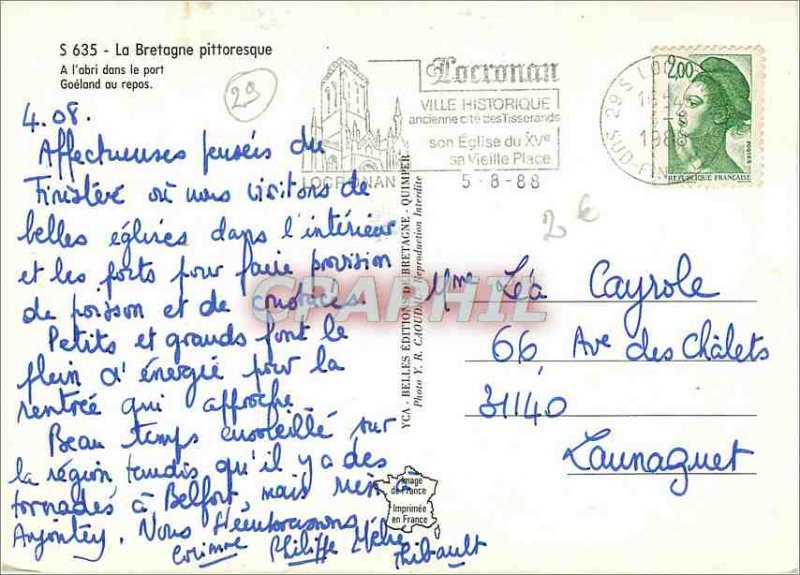 S 635 - La Bretagne pittoresque
A l'abri dans le port
Goéland au repos.
29
Locronan
VILLE HISTORIQUE
ancienne cité des Tisserands
son Église du XVe
sa Vieille Place
LOCRONAN
5-8-88
29 S LOC
SUD-FIN
2,00
POSTES
REPUBLIQUE FRANÇAISE
4.08.
Affectueuses pensées du
Finistère où nous visitons de
belles églises dans l'intérieur
et les ports pour faire provision
de poisson et de crustacés.
Petits et grands font le
plein d'énergie pour la
rentrée qui approche.
Beau temps ensoleillé sur
la région tandis qu'il y a des
tornades à Belfort, mais rien à
Anjoutey. Nous t'embrassons
Corinne Philippe Thibault
YCA - BELLES ÉDITIONS DE BRETAGNE - QUIMPER
Photo Y. R. CAOUDAL - Reproduction Interdite
2 €
Mme Léa Cayrole
66, Ave des Châlets
31140
Launaguet
Image
de France
Imprimée
en France
CPAPHIL